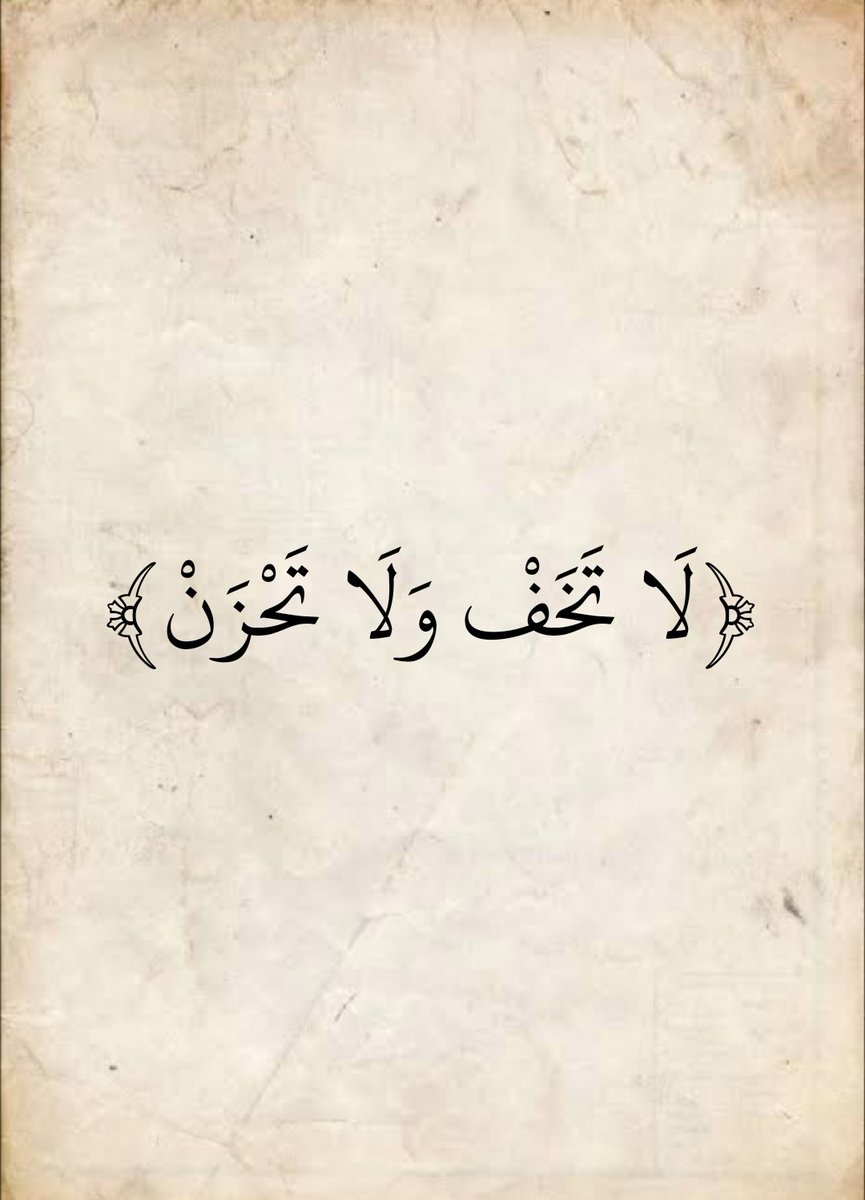 ﴿لَا تَخَفْ وَلَا تَحْزَنْ﴾